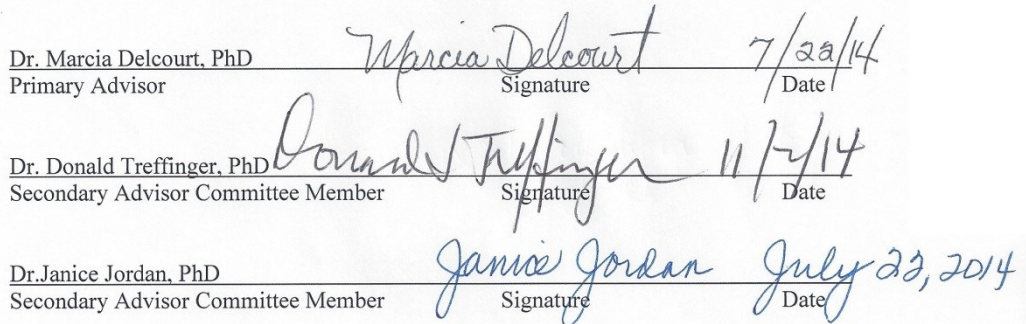 Dr. Marcia Delcourt, PhD Marcia Delcourt 7/22/14
Primary Advisor Signature Date
Dr. Donald Treffinger, PhD Donald J Treffinger 11/2/14
Secondary Advisor Committee Member Signature Date
Dr.Janice Jordan, PhD Janice Jordan July 22, 2014
Secondary Advisor Committee Member Signature Date